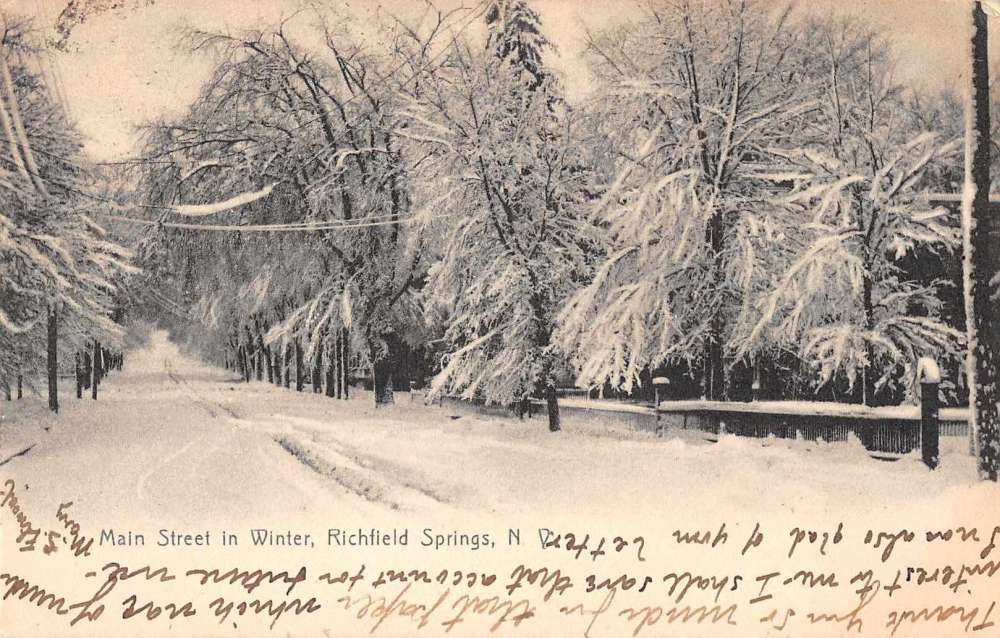 Main Street in Winter, Richfield Springs, N. Y.
Thank you so much for that paper which was of much
interest to me. I shall save that account for future use-
I was also glad of your letter
Mary